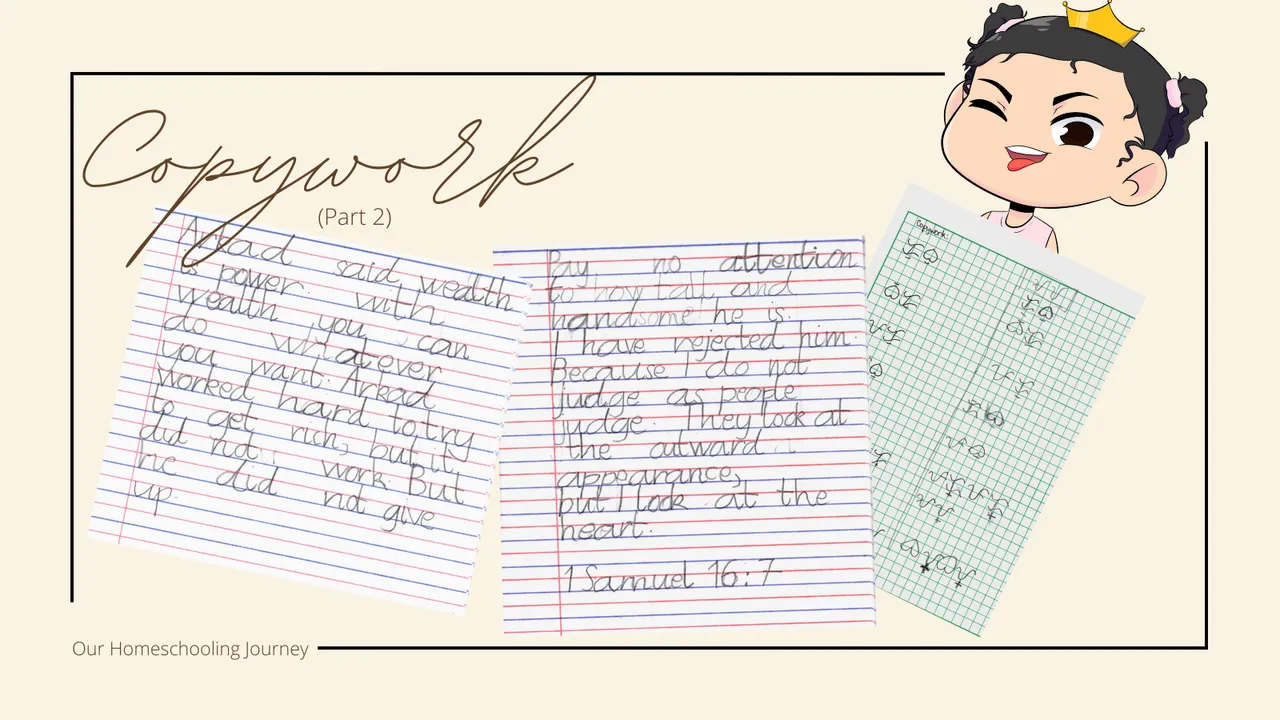 Copywork
(Part 2)
Arkad said, wealth
is power. with
wealth you can
do whatever
you want. Arkad
worked hard to try
to get rich, but it
did not work. But
he did not give
up.
Pay no attention
to how tall and
handsome he is.
I have rejected him.
Because I do not
judge as people
judge. They look at
the outward
appearance,
but I look at the
heart.
1 Samuel 16:7
Copywork:
Our Homeschooling Journey